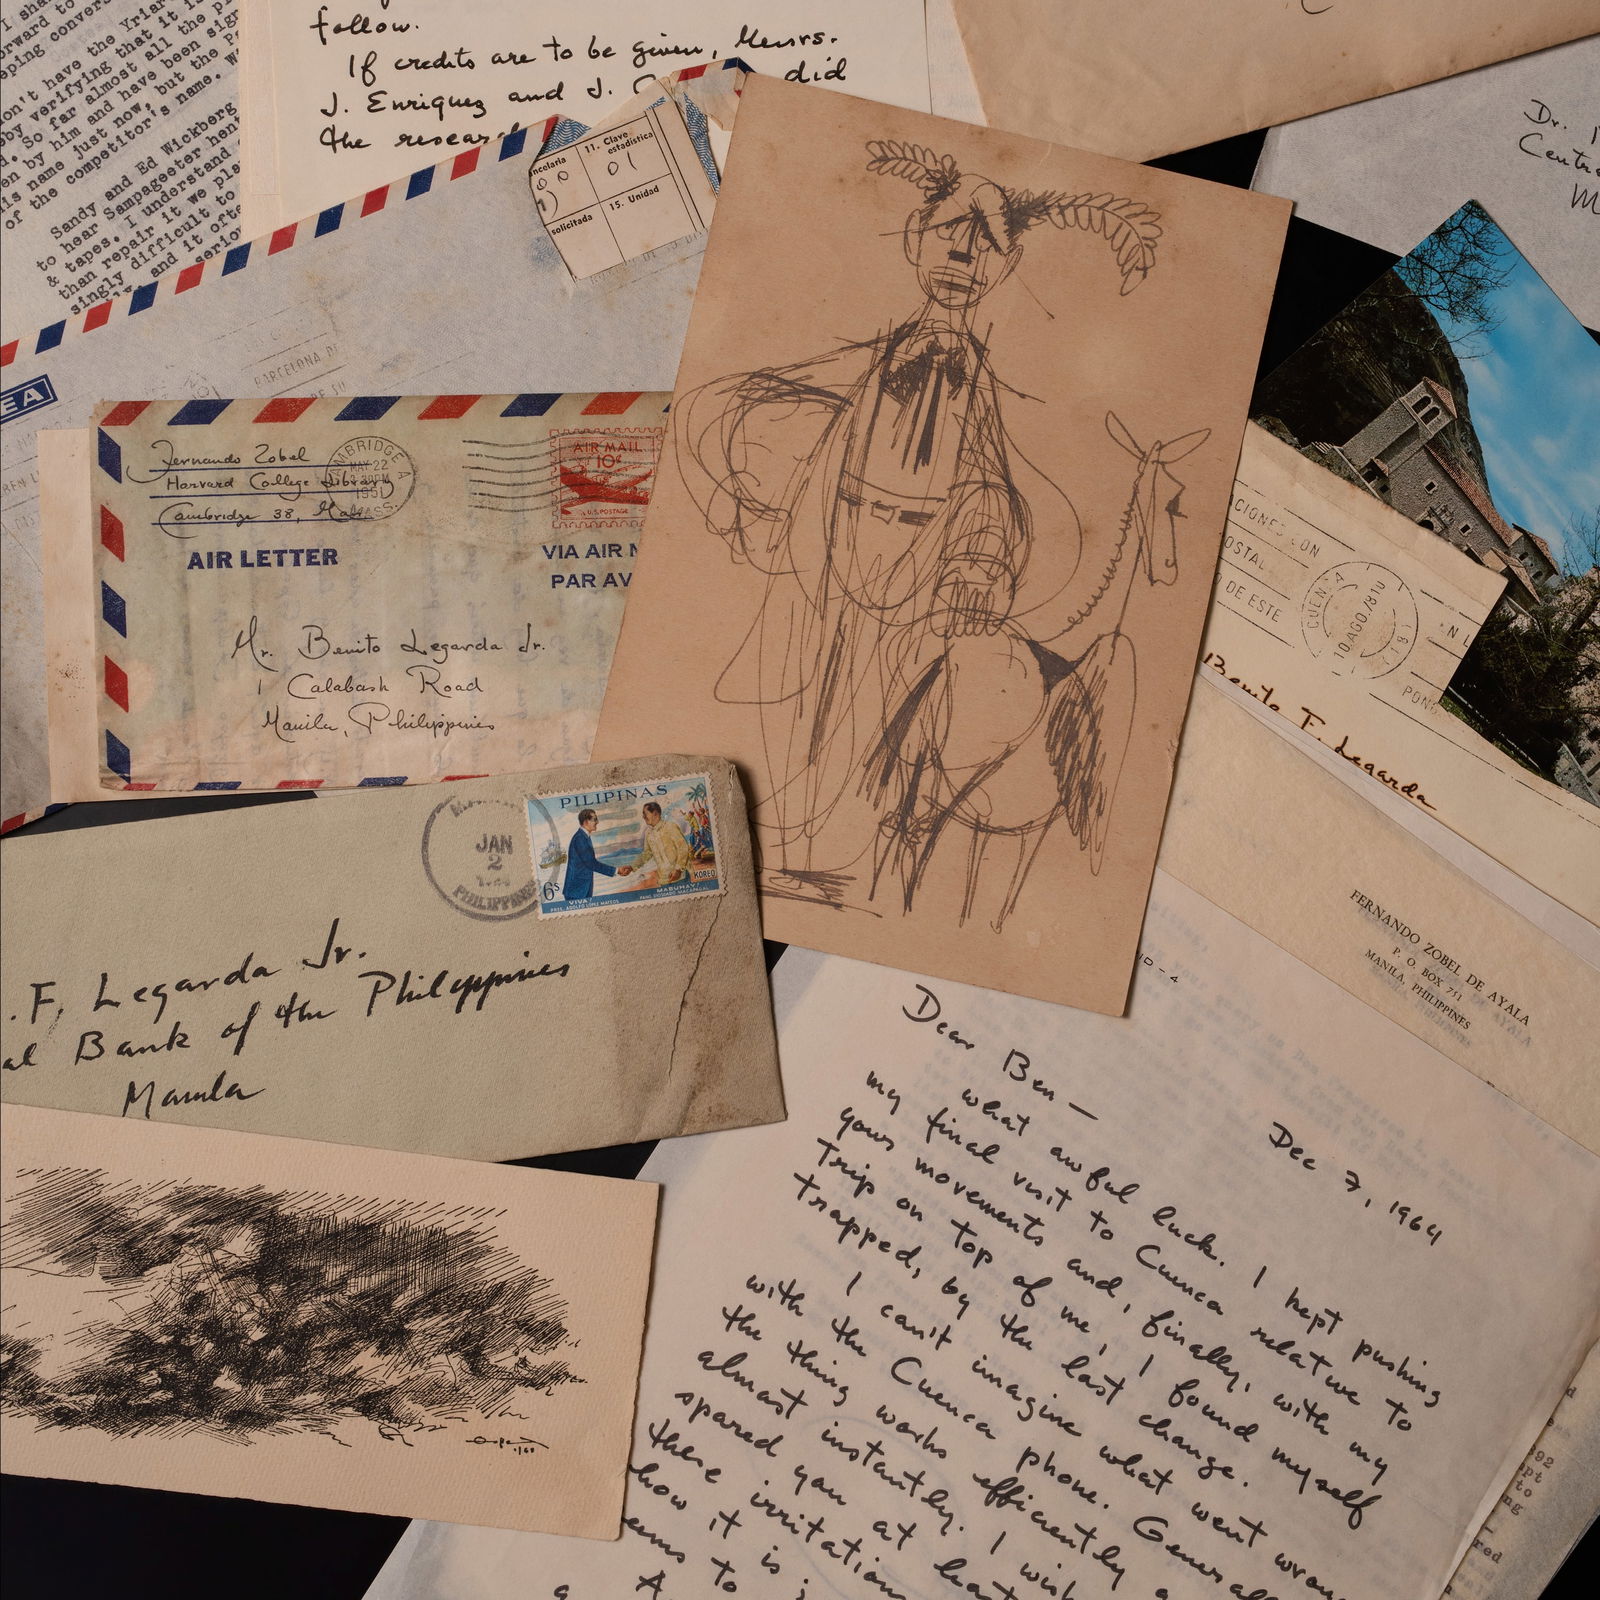 I sha
forward to
eping convers
don't have the Yriar
by verifying that it is
d. So far almost all the p
en by him and have been sign
his name just now, but the Pa
of the competitor's name. W
Sandy and Ed Wickberg
to hear Sampageeter hent
& tapes. I understand
than repair it we ple
singly difficult to
and it ofte
seriou
follow.
If credits are to be given, Messrs.
J. Enriquez and J. did
the resear
ncelaría
11. Clave estadística
01
solicitada
15. Unidad
BARCELONA
EA
Dr.
Centra
M
Fernando Zobel
Harvard College Library
Cambridge 38, Mass.
CAMBRIDGE A
MAY 22
1951
MASS.
AIR MAIL
10¢
U.S. POSTAGE
AIR LETTER
VIA AIR M
PAR AV
Mr. Benito Legarda Jr.
1 Calabash Road
Manila, Philippines
CIONES CON
OSTAL
DE ESTE
CUENCA
10 AGO. 81
N L
PONG
Benito F. Legarda
FERNANDO ZOBEL DE AYALA
P. O. BOX 751
MANILA, PHILIPPINES
JAN
2
PHILIPPINES
PILIPINAS
6s
KOREO
VIVA!
PRES. ADOLFO LOPEZ MATEOS
MABUHAY!
PANG. DIOSDADO MACAPAGAL
. F. Legarda Jr.
al Bank of the Philippines
Manila
ND-4
Dear Ben —
Dec 7, 1964
what awful luck. I kept pushing
my final visit to Cuenca relative to
your movements and, finally, with my
trip on top of me, I found myself
trapped, by the last change.
I can't imagine what went wrong
with the Cuenca phone. Generall
the thing works efficiently a
almost instantly. I wish
spared you at least
these irritations
how it is
ems to
a A
92
ept
to
ng
red